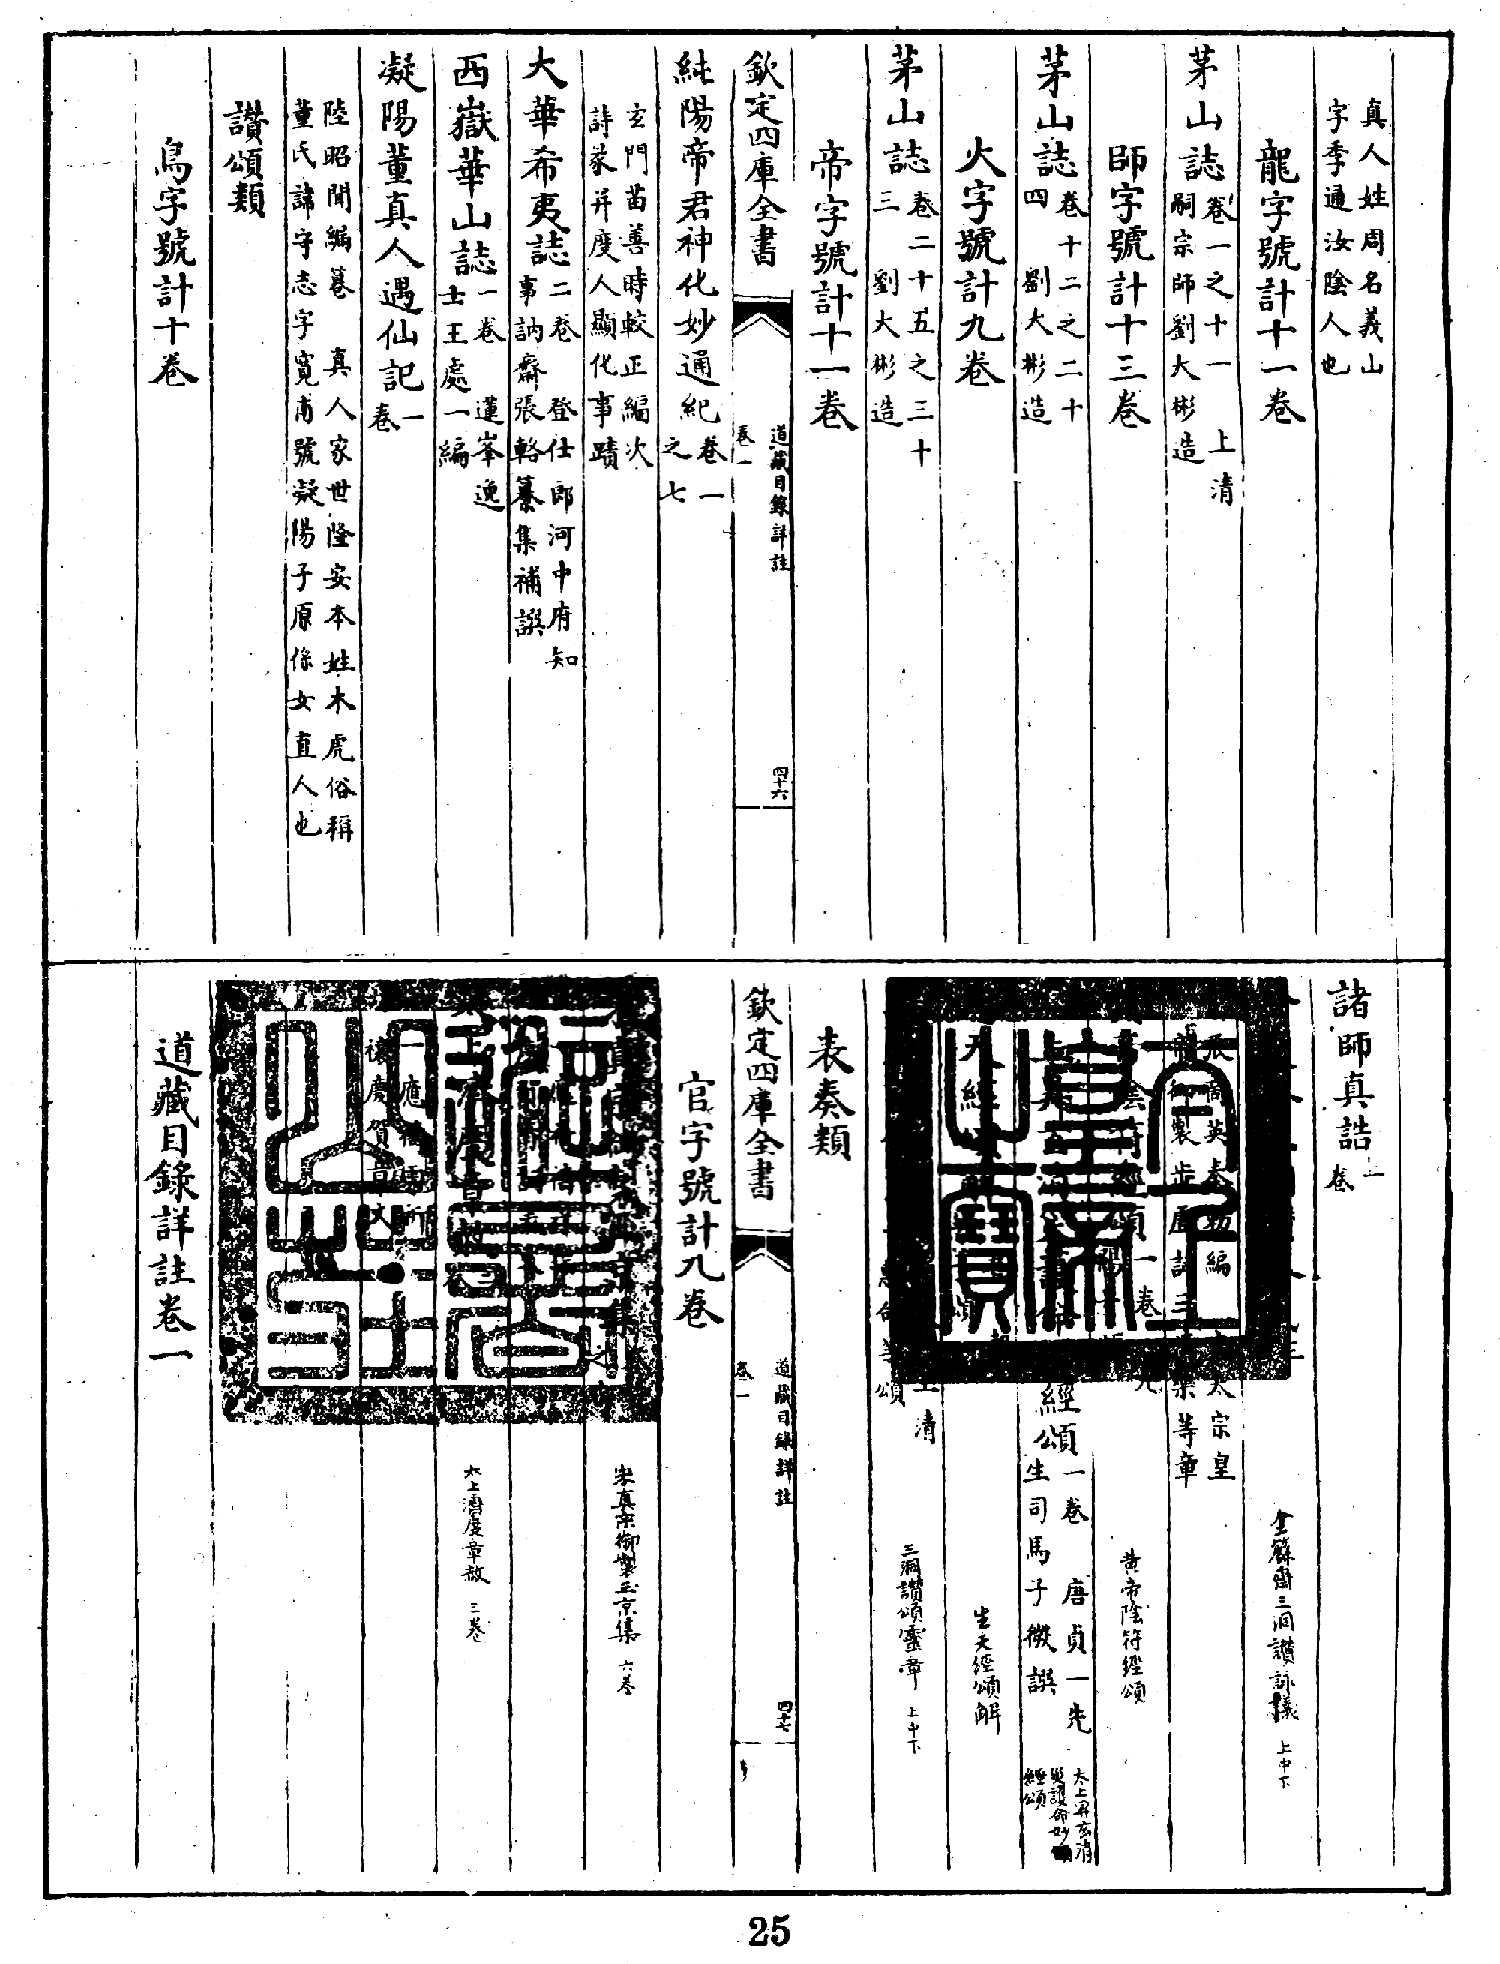 真人姓周名義山
字季通汝陰人也
龍字號計十一卷
茅山誌卷一之十一 上清
嗣宗師劉大彬造
師字號計十三卷
茅山誌卷十二之二十
四 劉大彬造
火字號計九卷
茅山誌卷二十五之三十
三 劉大彬造
帝字號計十一卷
欽定四庫全書
道藏目錄詳註
卷一
四十六
純陽帝君神化妙通紀卷一
之七
玄門苗善時較正編次
詩彖并度人顯化事蹟
大華希夷誌二卷 登仕郎河中府知
事訥齋張輅纂集補譔
西嶽華山誌一卷 蓮峯逸
士王處一編
凝陽董真人遇仙記一
卷
陸昭聞編卷 真人家世隆安本姓木虎俗稱
董氏諱守志字寬甫號凝陽子原係女直人也
讚頌類
鳥字號計十卷
諸師真誥一
卷
金籙齋三洞讚詠儀 上中下
張商英奉敕編 太宗皇
御製步虛詞三 樂等章
黃帝陰符經頌
陰符經頌一卷
經頌一卷 唐貞一先
生司馬子微譔
太上昇玄消
災護命妙
經頌
生天經頌解
三洞讚頌靈章 上中下
清
頌
表奏類
欽定四庫全書
道藏目錄詳註
卷一
四十七
官字號計九卷
宋真宗御製玉京集 六卷
太上濟度章赦 三卷
一應
禳慶賀章文
道藏目錄詳註卷一
25